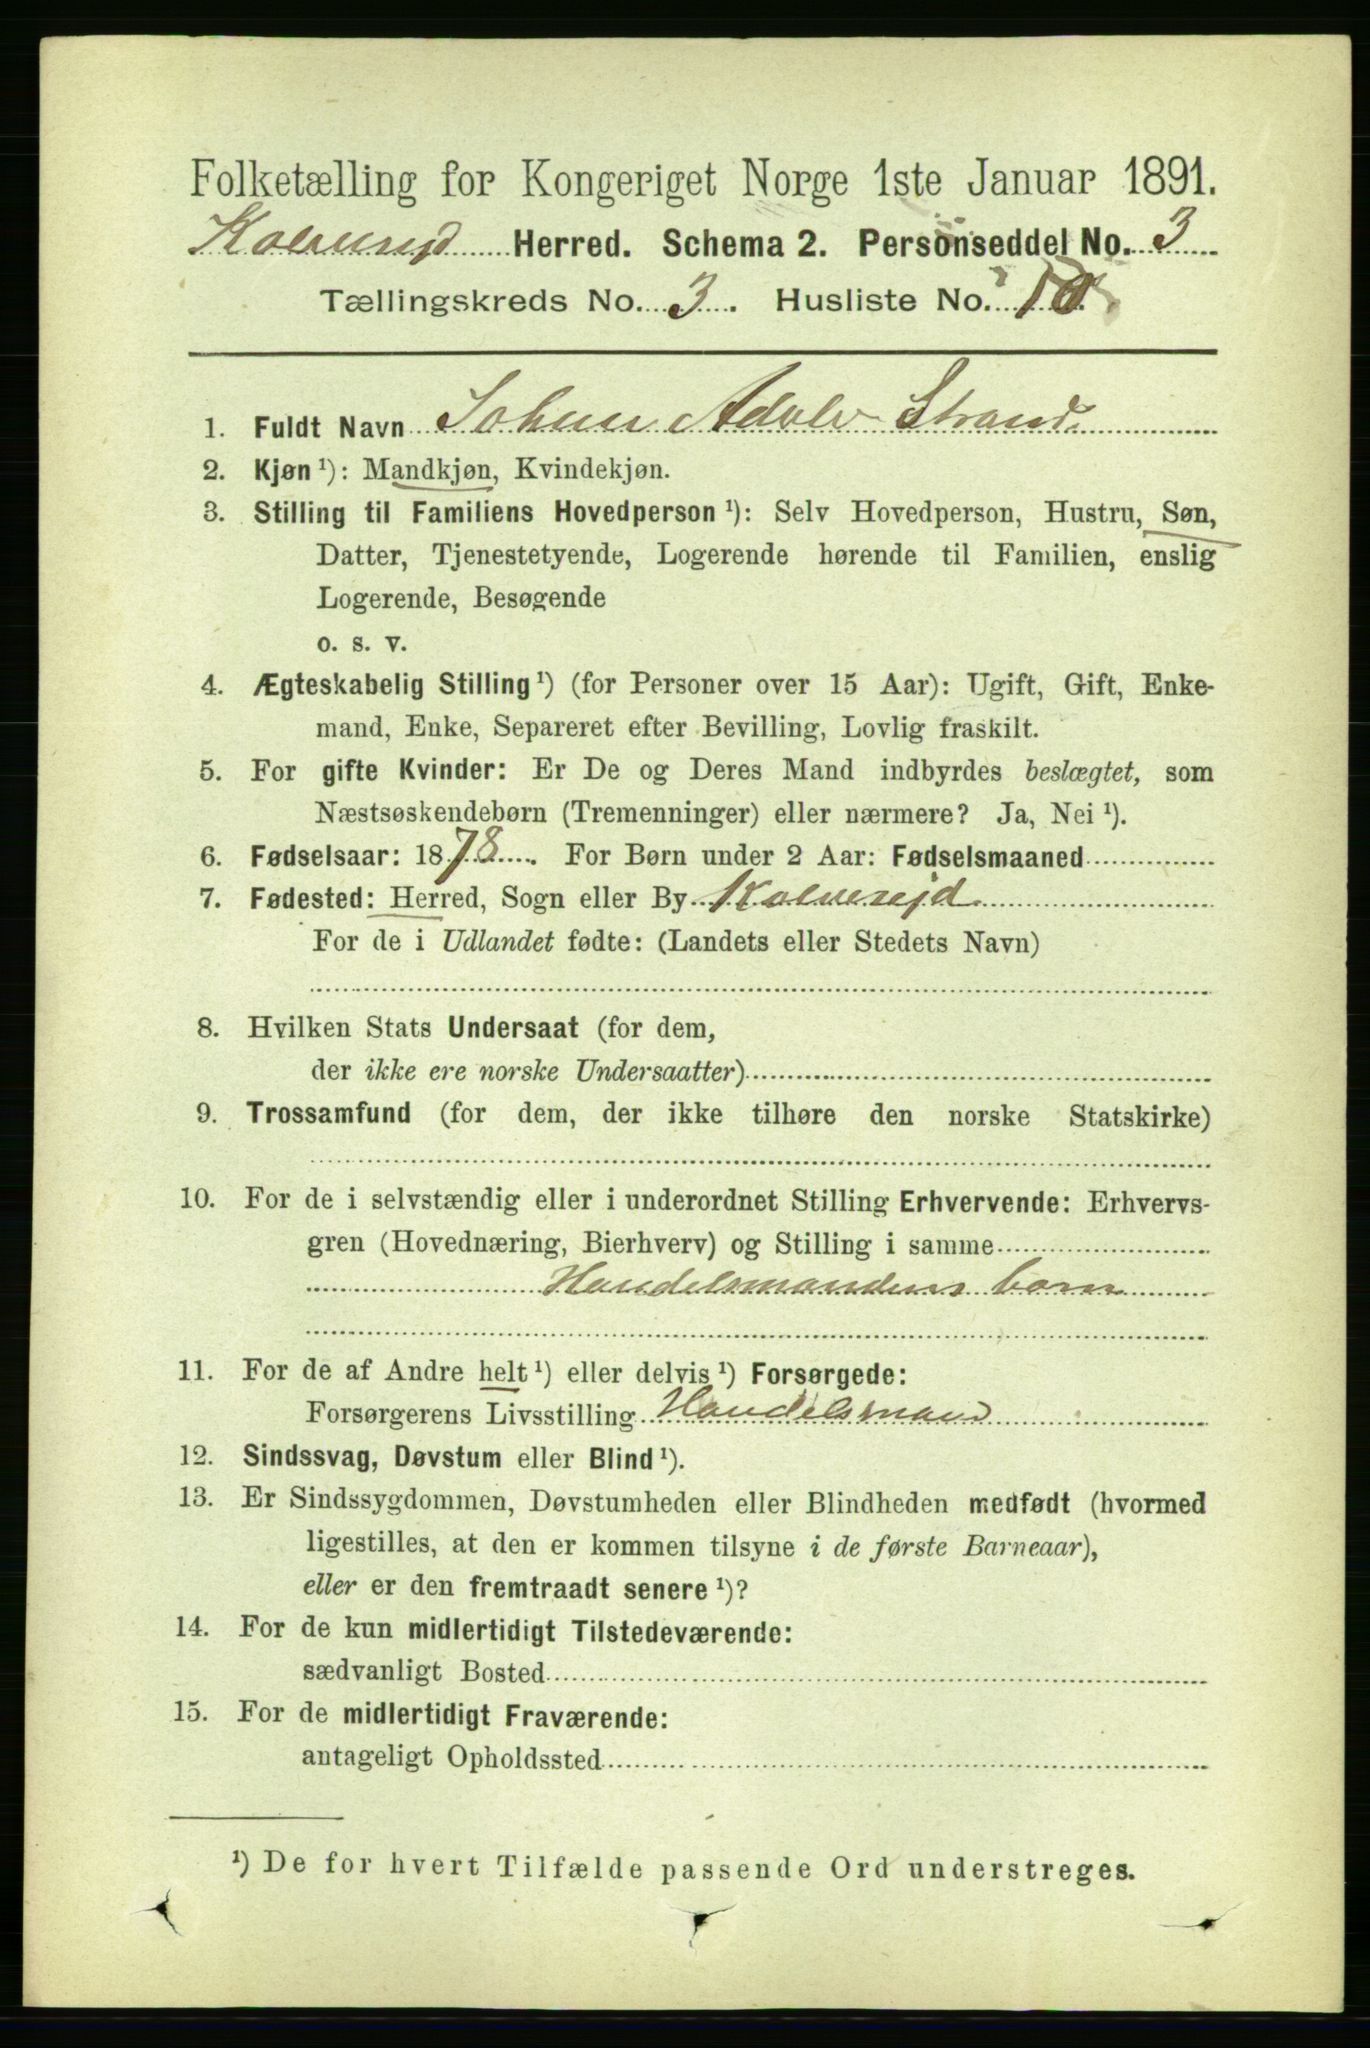 Folketælling for Kongeriget Norge 1ste Januar 1891.
Kolvereid Herred. Schema 2. Personseddel No. 3
Tællingskreds No. 3. Husliste No. 10
1. Fuldt Navn Johan Adolv Strand
2. Kjøn ¹): Mandkjøn, Kvindekjøn.
3. Stilling til Familiens Hovedperson ¹): Selv Hovedperson, Hustru, Søn,
Datter, Tjenestetyende, Logerende hørende til Familien, enslig
Logerende, Besøgende
o. s. v.
4. Ægteskabelig Stilling ¹) (for Personer over 15 Aar): Ugift, Gift, Enke-
mand, Enke, Separeret efter Bevilling, Lovlig fraskilt.
5. For gifte Kvinder: Er De og Deres Mand indbyrdes beslægtet, som
Næstsøskendebørn (Tremenninger) eller nærmere? Ja, Nei ¹).
6. Fødselsaar: 1878. For Børn under 2 Aar: Fødselsmaaned
7. Fødested: Herred, Sogn eller By Kolverejd
For de i Udlandet fødte: (Landets eller Stedets Navn)
8. Hvilken Stats Undersaat (for dem,
der ikke ere norske Undersaatter)
9. Trossamfund (for dem, der ikke tilhøre den norske Statskirke)
10. For de i selvstændig eller i underordnet Stilling Erhvervende: Erhvervs-
gren (Hovednæring, Bierhverv) og Stilling i samme
Handelsmandens barn
11. For de af Andre helt ¹) eller delvis ¹) Forsørgede:
Forsørgerens Livsstilling Handelsmand
12. Sindssvag, Døvstum eller Blind ¹).
13. Er Sindssygdommen, Døvstumheden eller Blindheden medfødt (hvormed
ligestilles, at den er kommen tilsyne i de første Barneaar),
eller er den fremtraadt senere ¹)?
14. For de kun midlertidigt Tilstedeværende:
sædvanligt Bosted
15. For de midlertidigt Fraværende:
antageligt Opholdssted
¹) De for hvert Tilfælde passende Ord understreges.